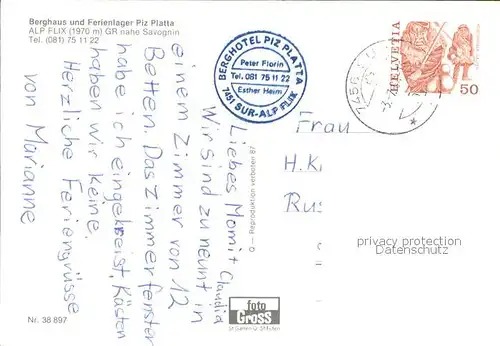 Berghaus und Ferienlager Piz Platta
ALP FLIX (1970 m) GR nahe Savognin
Tel. (081) 75 11 22
BERGHOTEL PIZ PLATTA
Peter Florin
Tel. 081 75 11 22
Esther Heim
7451 SUR-ALP FLIX
HELVETIA
50
7456
Liebes Momit Claudia
Wir sind zu neunt in
einem Zimmer von 12
Betten. Das Zimmerfenster
habe ich eingekreist, Kästen
haben wir keine.
Herzliche Feriengrüsse
von Marianne
Frau
H.K
Rus
Reproduktion verboten
privacy protection
Datenschutz
foto
Gross
Nr. 38 897